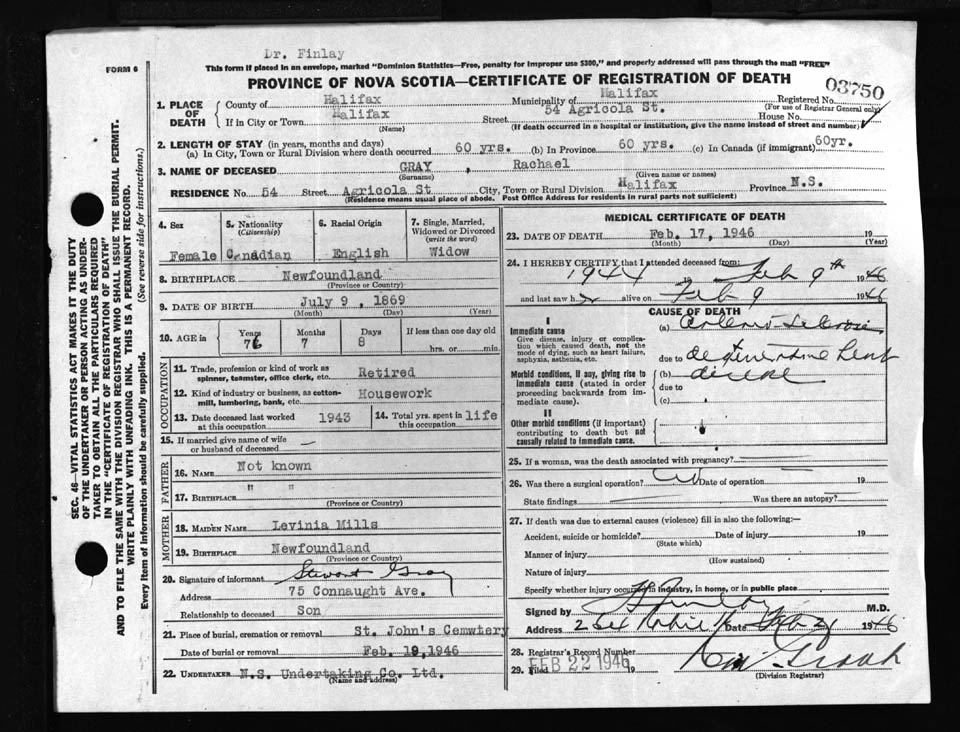 Dr. Finlay
FORM 6
This form if placed in an envelope, marked "Dominion Statistics—Free, penalty for improper use $300," and properly addressed will pass through the mail "FREE"
PROVINCE OF NOVA SCOTIA—CERTIFICATE OF REGISTRATION OF DEATH
03750
1. PLACE OF DEATH
County of Halifax Municipality of Halifax Registered No.
(For use of Registrar General only)
If in City or Town Halifax Street 54 Agricola St. House No.
(Name) (If death occurred in a hospital or institution, give the name instead of street and number)
2. LENGTH OF STAY (in years, months and days)
(a) In City, Town or Rural Division where death occurred 60 yrs. (b) In Province 60 yrs. (c) In Canada (if immigrant) 60yr.
3. NAME OF DECEASED GRAY , Rachael
(Surname) (Given name or names)
RESIDENCE No. 54 Street Agricola St City, Town or Rural Division Halifax Province N.S.
(Residence means usual place of abode. Post Office Address for residents in rural parts not sufficient)
4. Sex
Female
5. Nationality
(Citizenship)
Canadian
6. Racial Origin
English
7. Single, Married, Widowed or Divorced
(write the word)
Widow
8. BIRTHPLACE Newfoundland
(Province or Country)
9. DATE OF BIRTH July 9, 1869
(Month) (Day) (Year)
10. AGE in
Years Months Days If less than one day old
76 7 8 hrs. or min.
OCCUPATION
11. Trade, profession or kind of work as spinner, teamster, office clerk, etc. Retired
12. Kind of industry or business, as cotton-mill, lumbering, bank, etc. Housework
13. Date deceased last worked at this occupation 1943
14. Total yrs. spent in this occupation life
15. If married give name of wife or husband of deceased —
FATHER
16. NAME Not known
17. BIRTHPLACE " "
(Province or Country)
MOTHER
18. MAIDEN NAME Levinia Mills
19. BIRTHPLACE Newfoundland
(Province or Country)
20. Signature of informant Stewart Gray
Address 75 Connaught Ave.
Relationship to deceased Son
21. Place of burial, cremation or removal St. John's Cemwtiery
Date of burial or removal Feb. 19,1946
22. UNDERTAKER N.S. Undertaking Co. Ltd.
(Name and address)
MEDICAL CERTIFICATE OF DEATH
23. DATE OF DEATH Feb. 17, 1946 19
(Month) (Day) (Year)
24. I HEREBY CERTIFY that I attended deceased from:
1944 19 Feb 9th 1946
and last saw her alive on Feb 9 1946
CAUSE OF DEATH
I
Immediate cause
Give disease, injury or complication which caused death, not the mode of dying, such as heart failure, asphyxia, asthenia, etc.
(a)
due to
Morbid conditions, if any, giving rise to immediate cause (stated in order proceeding backwards from immediate cause).
(b) disease
due to
(c)
II
Other morbid conditions (if important) contributing to death but not causally related to immediate cause.
25. If a woman, was the death associated with pregnancy?
26. Was there a surgical operation? Date of operation 19
State findings Was there an autopsy?
27. If death was due to external causes (violence) fill in also the following:—
Accident, suicide or homicide? Date of injury 19
(State which)
Manner of injury
(How sustained)
Nature of injury
Specify whether injury occurred in industry, in home, or in public place
Signed by M.D.
Address Date 1946
28. Registrar's Record Number
29. Filed FEB 22 1946 19
(Division Registrar)
SEC. 46—VITAL STATISTICS ACT MAKES IT THE DUTY
OF THE UNDERTAKER OR PERSON ACTING AS UNDER-
TAKER TO OBTAIN ALL THE PARTICULARS REQUIRED
IN THE "CERTIFICATE OF REGISTRATION OF DEATH"
AND TO FILE THE SAME WITH THE DIVISION REGISTRAR WHO SHALL ISSUE THE BURIAL PERMIT.
WRITE PLAINLY WITH UNFADING INK. THIS IS A PERMANENT RECORD.
Every item of information should be carefully supplied. (See reverse side for instructions.)